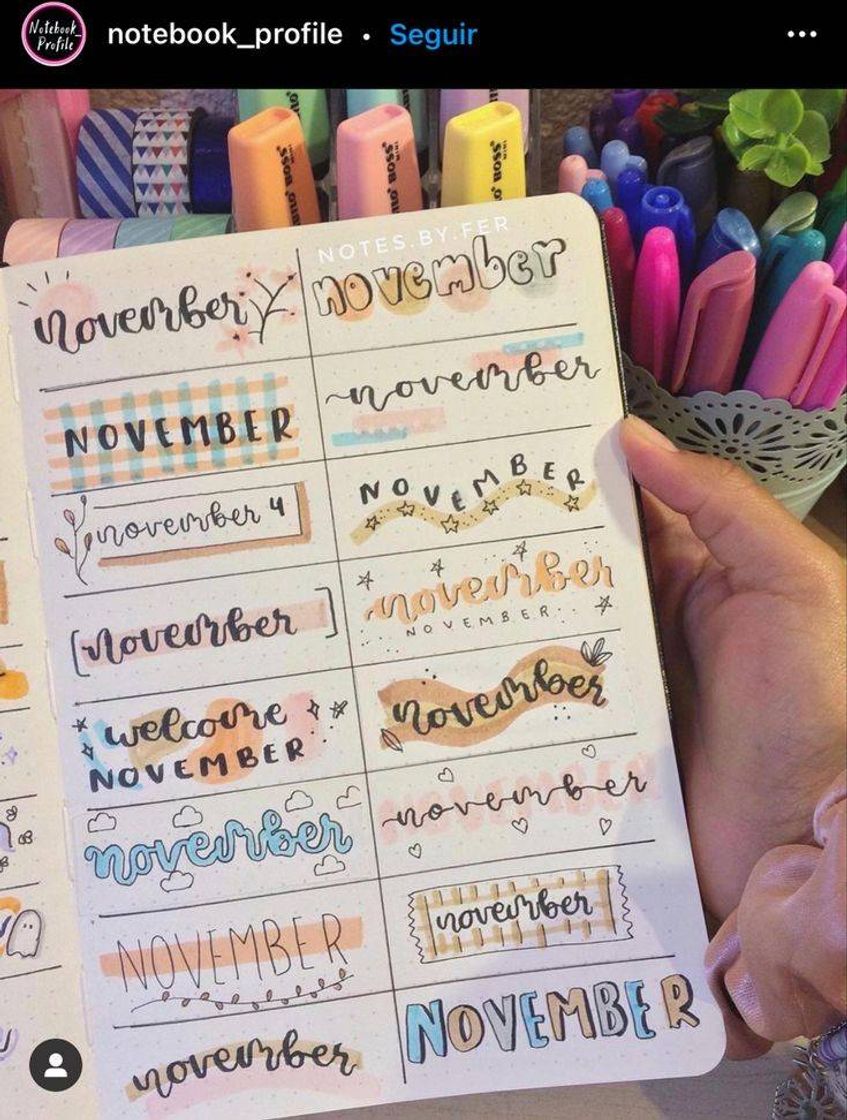 Notebook_
Profile
notebook_profile • Seguir
BOSS
BOSS
BOSS
NOTES.BY.FER
november
november
NOVEMBER
november
november 4
NOVEMBER
november
november
NOVEMBER
welcome
NOVEMBER
november
november
november
NOVEMBER
november
november
NOVEMBER